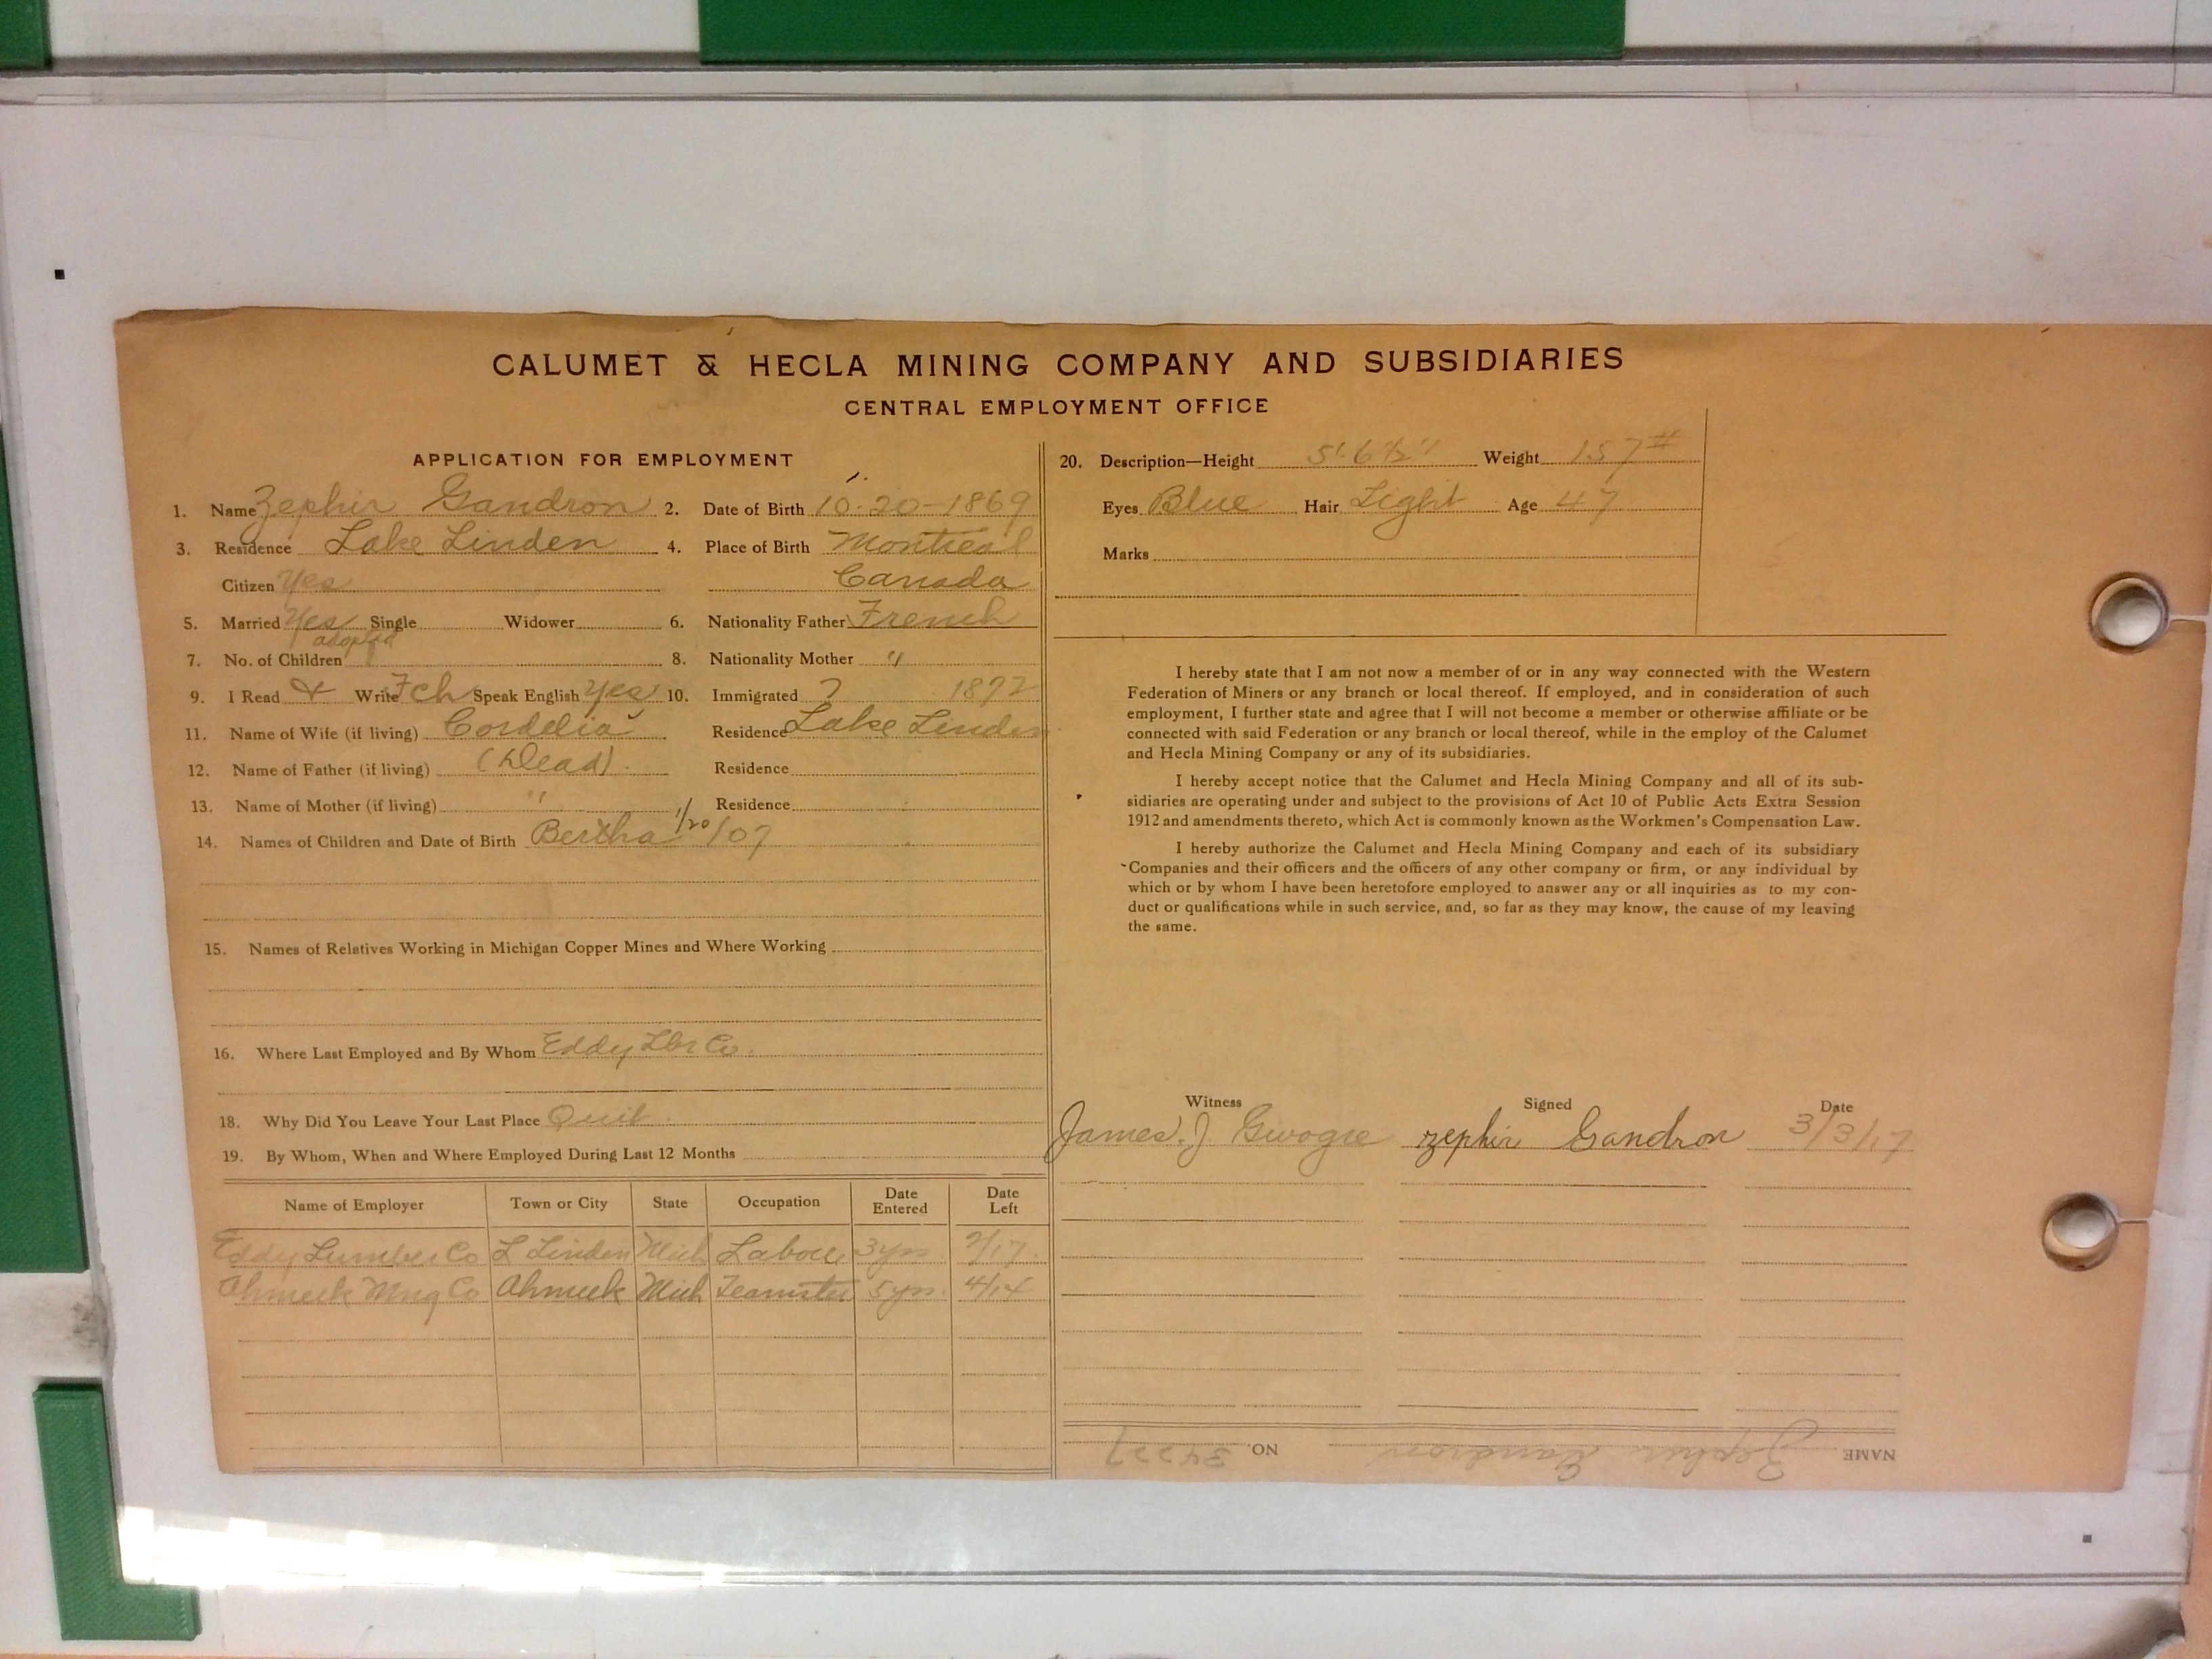 CALUMET & HECLA MINING COMPANY AND SUBSIDIARIES
CENTRAL EMPLOYMENT OFFICE
APPLICATION FOR EMPLOYMENT
1. Name Zephir Gandron 2. Date of Birth 10-20-1869
3. Residence Lake Linden 4. Place of Birth Montreal
Citizen Yes Canada
5. Married Yes Single Widower 6. Nationality Father French
adopted
7. No. of Children 1 8. Nationality Mother "
9. I Read & Write Fch Speak English Yes 10. Immigrated ? 1872
11. Name of Wife (if living) Cordelia Residence Lake Linden
12. Name of Father (if living) (Dead) Residence
13. Name of Mother (if living) " Residence
14. Names of Children and Date of Birth Bertha 1/20/07
15. Names of Relatives Working in Michigan Copper Mines and Where Working
16. Where Last Employed and By Whom Eddy Lbr Co.
18. Why Did You Leave Your Last Place Quit
19. By Whom, When and Where Employed During Last 12 Months
Name of Employer Town or City State Occupation Date Entered Date Left
Eddy Lumber Co L Linden Mich Labor 3 yrs. 2/17.
Ahmeek Mng Co Ahmeek Mich Teamster 5 yrs. 4/14
20. Description—Height 5' 6 1/2" Weight 157#
Eyes Blue Hair Light Age 47
Marks
I hereby state that I am not now a member of or in any way connected with the Western
Federation of Miners or any branch or local thereof. If employed, and in consideration of such
employment, I further state and agree that I will not become a member or otherwise affiliate or be
connected with said Federation or any branch or local thereof, while in the employ of the Calumet
and Hecla Mining Company or any of its subsidiaries.
I hereby accept notice that the Calumet and Hecla Mining Company and all of its sub-
sidiaries are operating under and subject to the provisions of Act 10 of Public Acts Extra Session
1912 and amendments thereto, which Act is commonly known as the Workmen's Compensation Law.
I hereby authorize the Calumet and Hecla Mining Company and each of its subsidiary
Companies and their officers and the officers of any other company or firm, or any individual by
which or by whom I have been heretofore employed to answer any or all inquiries as to my con-
duct or qualifications while in such service, and, so far as they may know, the cause of my leaving
the same.
Witness Signed Date
James. J. zephir Gandron 3/3/17
NAME Zephir Gandron NO. 34227